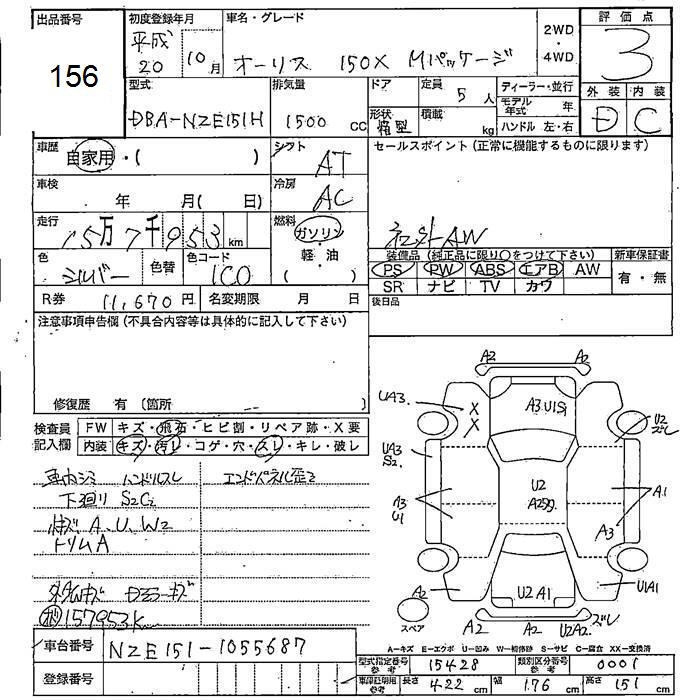 出品番号
156
初度登録年月
平成
20
10月
車名・グレード
オーリス 150X Mパッケージ
2WD
・
4WD
評価点
3
外装 内装
D C
型式
DBA-NZE151H
排気量
1500 CC
ドア
形状
箱型
定員
5人
積載
kg
ディーラー・並行
モデル年式 年
ハンドル 左・右
車歴
自家用・( )
シフト
AT
セールスポイント(正常に機能するものに限ります)
社外AW
車検
年 月( 日)
冷房
AC
走行
15万7千953km
燃料
ガソリン
・
軽・油
( )
色
シルバー
色替
色コード
1C0
装備品(純正品に限り○をつけて下さい)
PS PW ABS エアB AW
SR ナビ TV カワ
新車保証書
有・無
R券 11,670円
名変期限 月 日
後日品
注意事項申告欄(不具合内容等は具体的に記入して下さい)
修復歴 有 〔箇所 〕
検査員
記入欄
FW キズ・飛石・ヒビ割・リペア跡・X要
内装 キズ・汚レ・コゲ・穴・スレ・キレ・破レ
車内シミ ハンドルスレ
エンドパネル歪ミ
下廻り S2C2
A、U、W2
トリムA
157953k
車台番号 NZE151-1055687
登録番号
A2 A2
UA3
X
X
A3 U1
U2
UA3
S2
A3
U1
U2
A1
A3
A2
U2 A1
U1A1
スペア
A2 A2 U2A2
A-キズ E-エクボ U-凹み W-補修跡 S-サビ C-腐食 XX-交換済
型式指定番号
参考
15428
類別区分番号
参考
0001
車庫証明用
参考
長さ 422 cm
幅 176 cm
高さ 151 cm